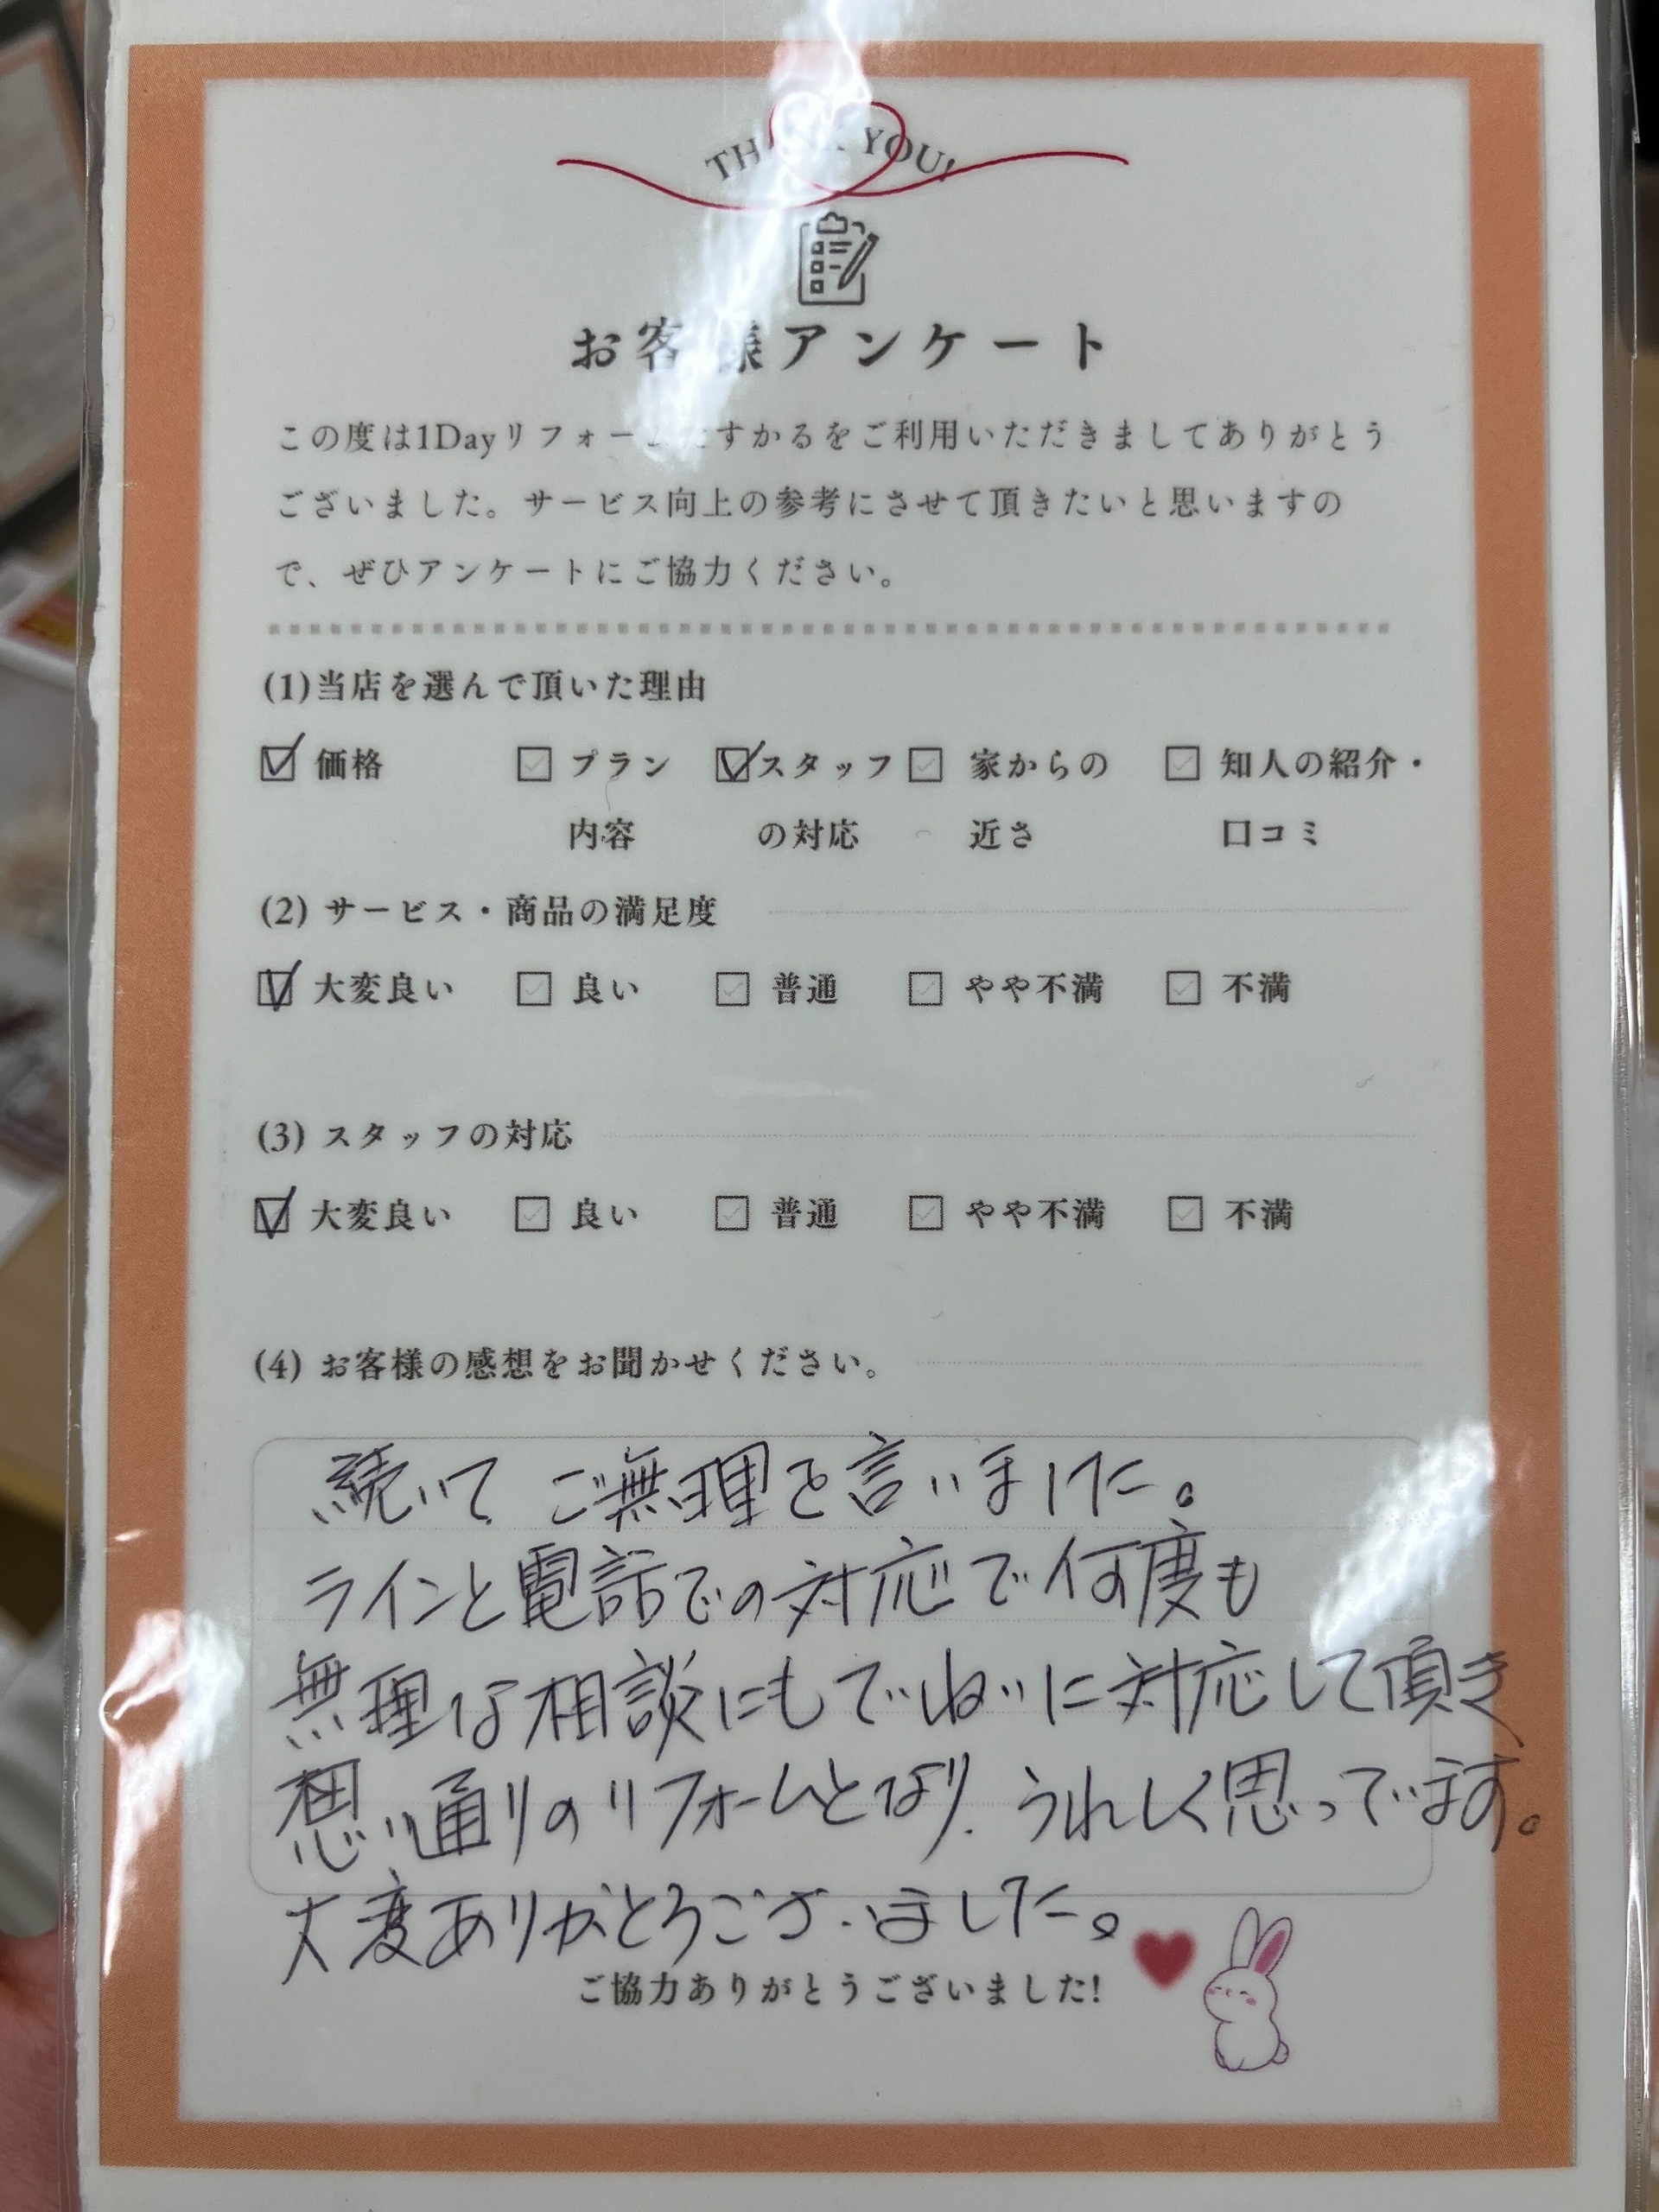 THANK YOU!
お客様アンケート
この度は1Dayリフォームたすかるをご利用いただきましてありがとう
ございました。サービス向上の参考にさせて頂きたいと思いますの
で、ぜひアンケートにご協力ください。
(1)当店を選んで頂いた理由
価格 プラン スタッフ 家からの 知人の紹介・
内容 の対応 近さ 口コミ
(2) サービス・商品の満足度
大変良い 良い 普通 やや不満 不満
(3) スタッフの対応
大変良い 良い 普通 やや不満 不満
(4) お客様の感想をお聞かせください。
続いて ご無理を言いました。
ラインと電話での対応で何度も
無理な相談にもていねいに対応して頂き
想い通りのリフォームとなり、うれしく思っています。
大変ありがとうございました。
ご協力ありがとうございました!